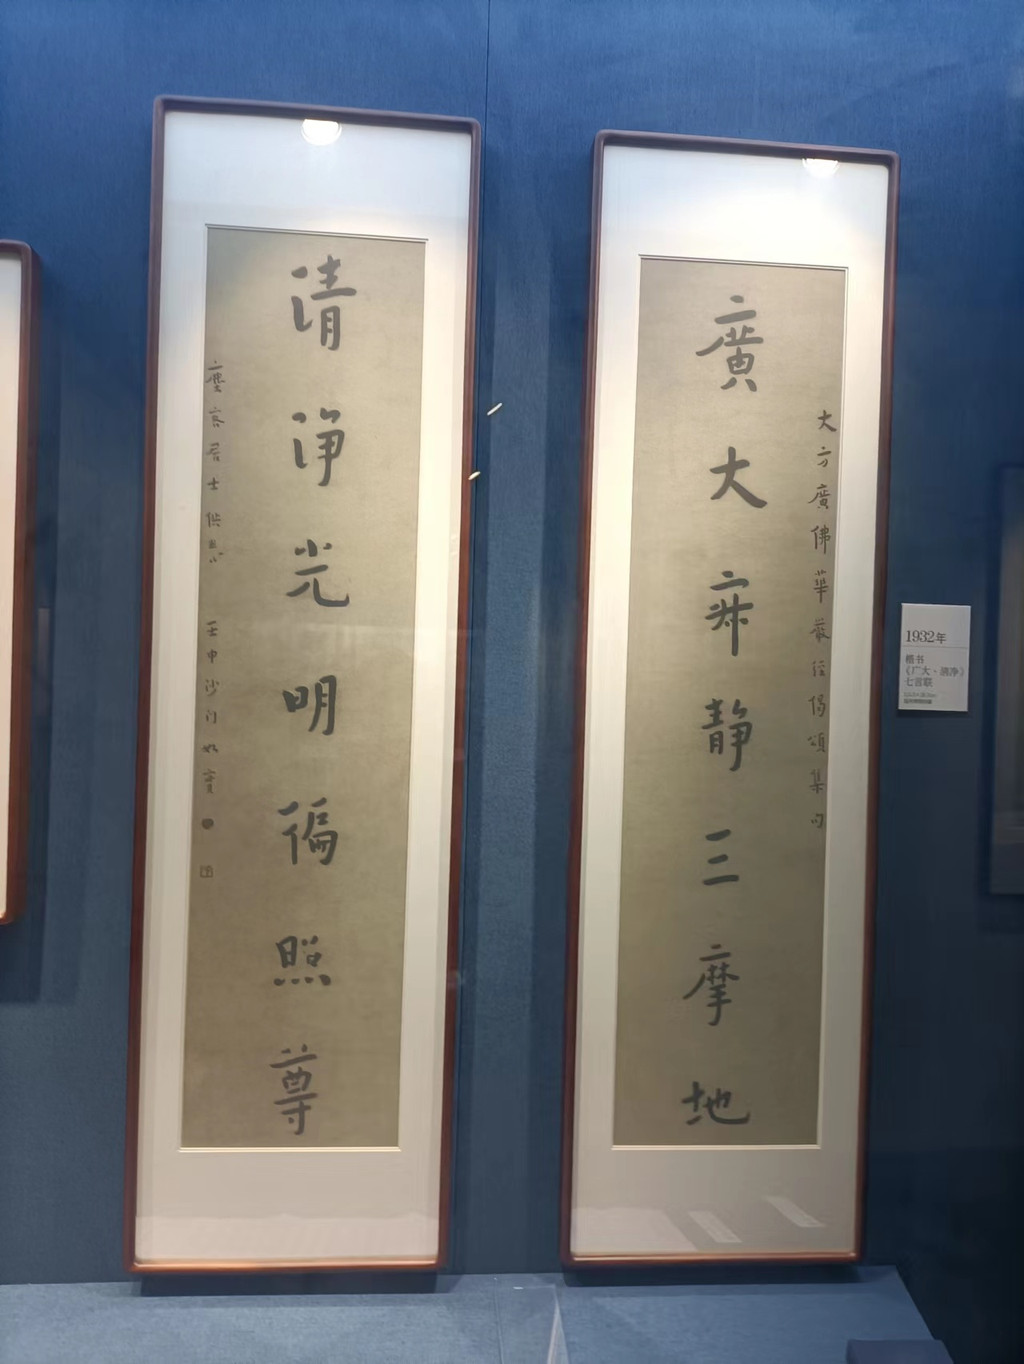 廣大寂静三摩地
大方廣佛華嚴經偈頌集句
清淨光明徧照尊
居士供
壬申沙門
1932年
楷书
《广大·清净》
七言联